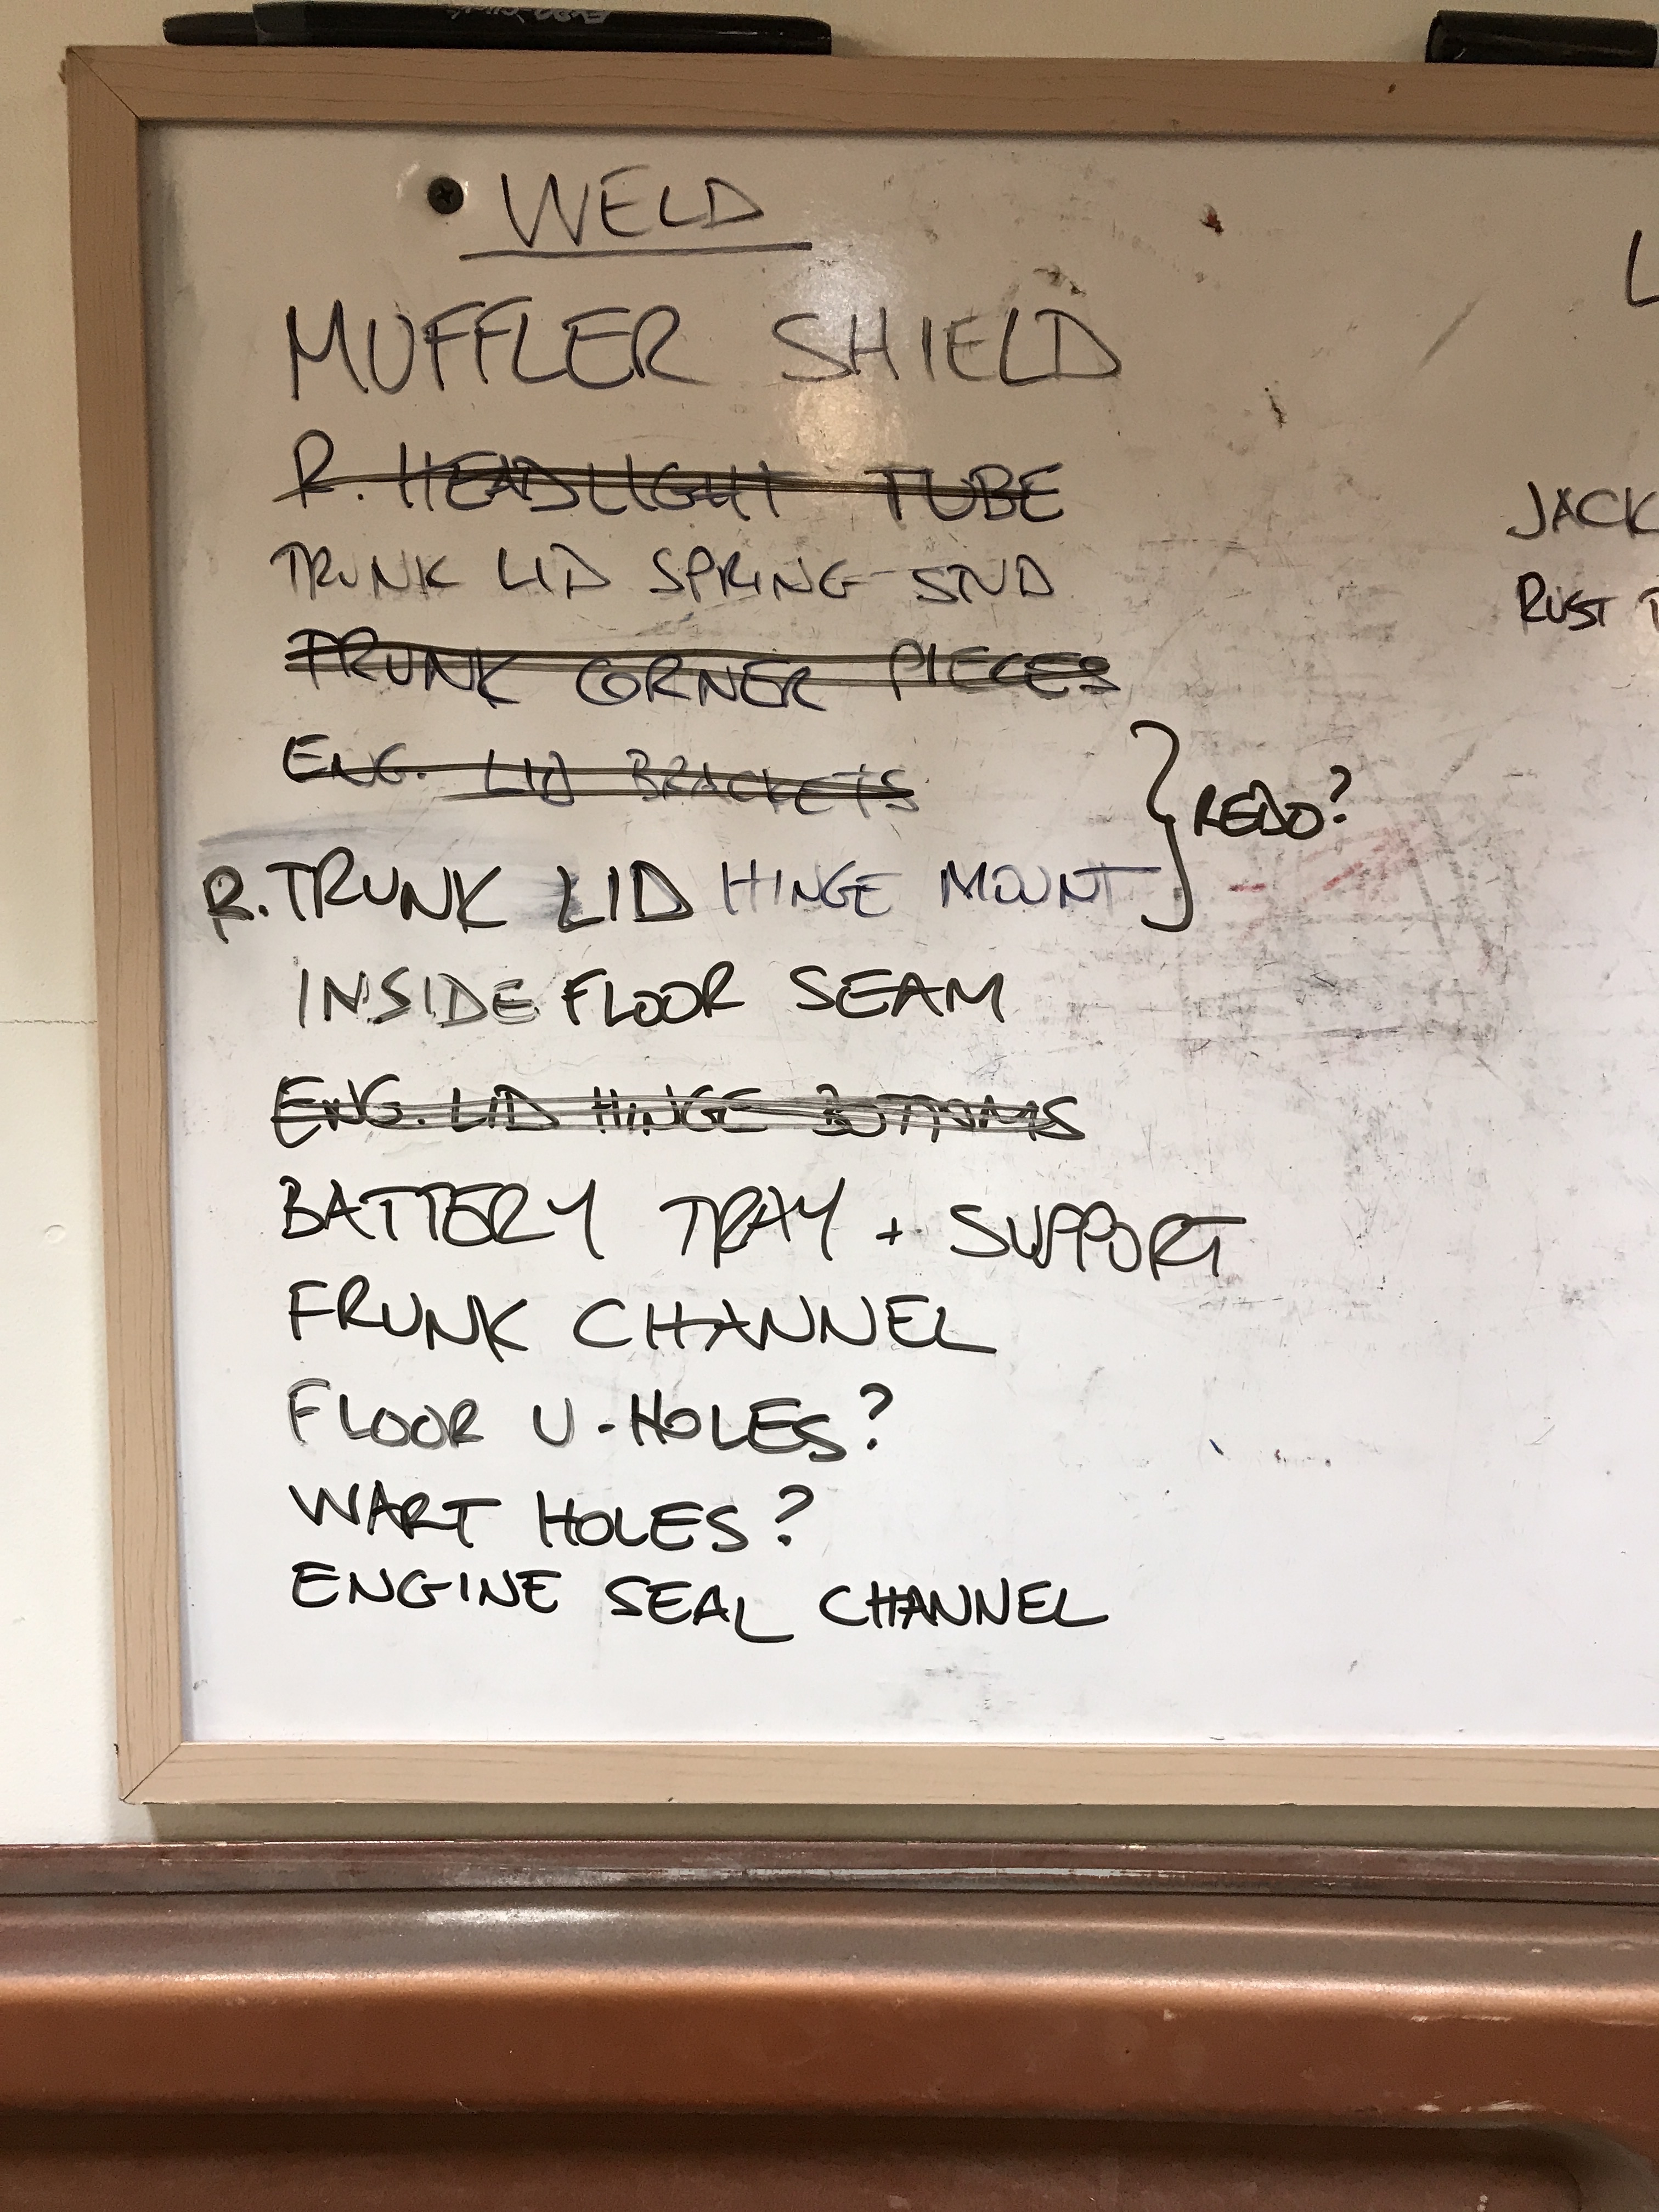 WELD
MUFFLER SHIELD
R. HEADLIGHT TUBE
TRUNK LID SPRING STUD
TRUNK CORNER PIECES
ENG. LID BRACKETS
} REDO?
R. TRUNK LID HINGE MOUNT
INSIDE FLOOR SEAM
ENG. LID HINGE BOTTOMS
BATTERY TRAY + SUPPORT
FRUNK CHANNEL
FLOOR U-HOLES?
WART HOLES?
ENGINE SEAL CHANNEL
L
JACK
RUST